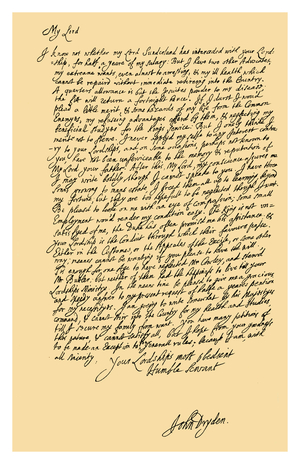 My Lord
I know not whether my Lord Sunderland has interceded with your Lord-
ship, for half a yeare of my salary. But I have two other Advocates,
my extreame wants, even almost to arresting, & my ill health which
cannot be repaird without immediate retireing into the Country.
A quarters allowance is but the Jesuites powder to my disease;
the fitt will return a fortnight hence. If I durst I wou'd
plead a little merit, & some hazards of my life from the Common
Enemyes, my refuseing advantages offerd by them, & neglecting my
beneficiall studyes for the King's service: But I only thinke I
merit not to sterve. I never applyd my selfe to any Interest contra-
ry to your Lordship's, and on some occasions, perhaps not known to
you, have not been unserviceable to the memory & reputation of
My Lord your father. After this, My Lord, my conscience assures me
I may write boldly, though I cannot speake to you. I have three
Sonns growing to mans estate, I breed them all up to learning, beyond
my fortune; but they are too hopefull to be neglected though I want.
Be pleasd to looke on me with an eye of compassion; some small
Employment wou'd render my condition easy. The King is not un-
satisfied of me, the Duke has often promisd me his assistance; &
Your Lordship is the Conduit through which their favours passe.
Either in the Customes, or the Appeales of the Excise, or some other
way; meanes cannot be wanting if you please to have the will.
Tis enough for one Age to have neglected Mr Cowley, and sterv'd
Mr Butler; but neither of them had the happiness to live till your
Lordship's Ministry. In the meane time be pleasd to give me a gracious
and speedy answer to my present request of halfe a yeares pention
for my necessityes. I am going to write somewhat by his Majestyes
command, & cannot stirr into the Country for my health and studies,
till I secure my family from want. You have many petitions of
this nature, & cannot satisfy all, but I hope from your goodness
to be made an Exception to your generall rules; because I am, with
all sincerity,
Your Lordship's most obedient
Humble Servant
John Dryden.